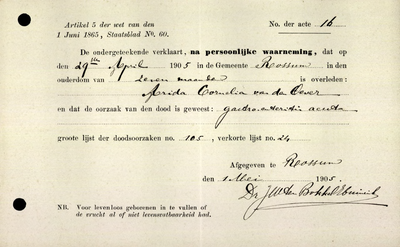 Artikel 5 der wet van den
1 Juni 1865, Staatsblad No. 60.
No. der acte 16
De ondergeteekende verklaart, na persoonlijke waarneming, dat op
den 29sten April 1905 in de Gemeente Rossum in den
ouderdom van zeven maanden is overleden:
Arida Cornelia van den Oever
en dat de oorzaak van den dood is geweest: gastro enteritis acuta
groote lijst der doodsoorzaken no. 105, verkorte lijst no. 24
Afgegeven te Rossum
den 1 Mei 1905.
Dr J W ten
NB. Voor levenloos geborenen in te vullen of
de vrucht al of niet levensvatbaarheid had.